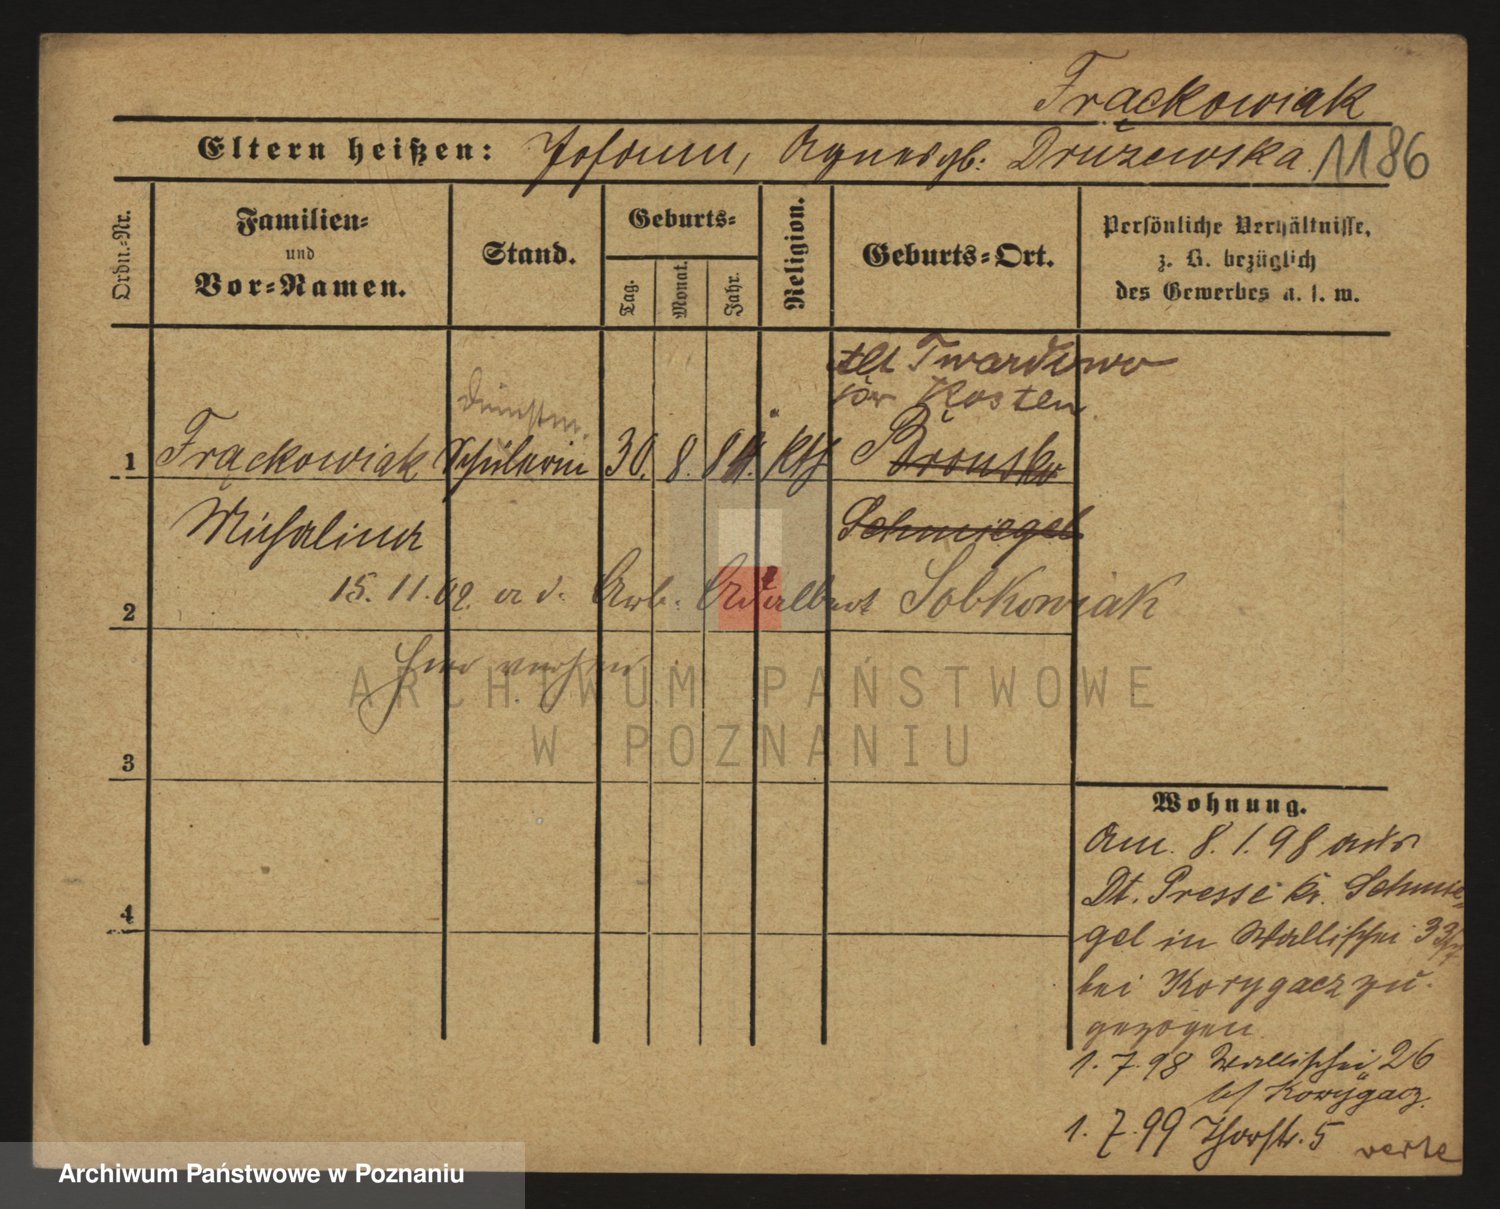 Frąckowiak
Eltern heißen: Johann, Agnes gb: Družewska 1186
Ordn.-Nr.
Familien-
und
Vor-Namen.
Stand.
Geburts-
Tag.
Monat.
Jahr.
Religion.
Geburts-Ort.
Persönliche Verhältnisse,
z. B. bezüglich
des Gewerbes u. s. w.
Alt Twardowo
Kosten
1 Frąckowiak Schülerin 30. 8. kth Bronsko
Michalina Schmiegel
15. 11. 02. a d. Arb. Adalbert Sobkowiak
2
3
4
Wohnung.
Am 8. 1. 98 aus
Dt. Presse Kr. Schmie-
gel in Wallischei 33
bei Korygacz zu-
gezogen
1. 7. 98 Wallischei 26
bf Korygacz.
1. 7. 99 Thorstr. 5 verte
ARCHIWUM PAŃSTWOWE
W POZNANIU
Archiwum Państwowe w Poznaniu